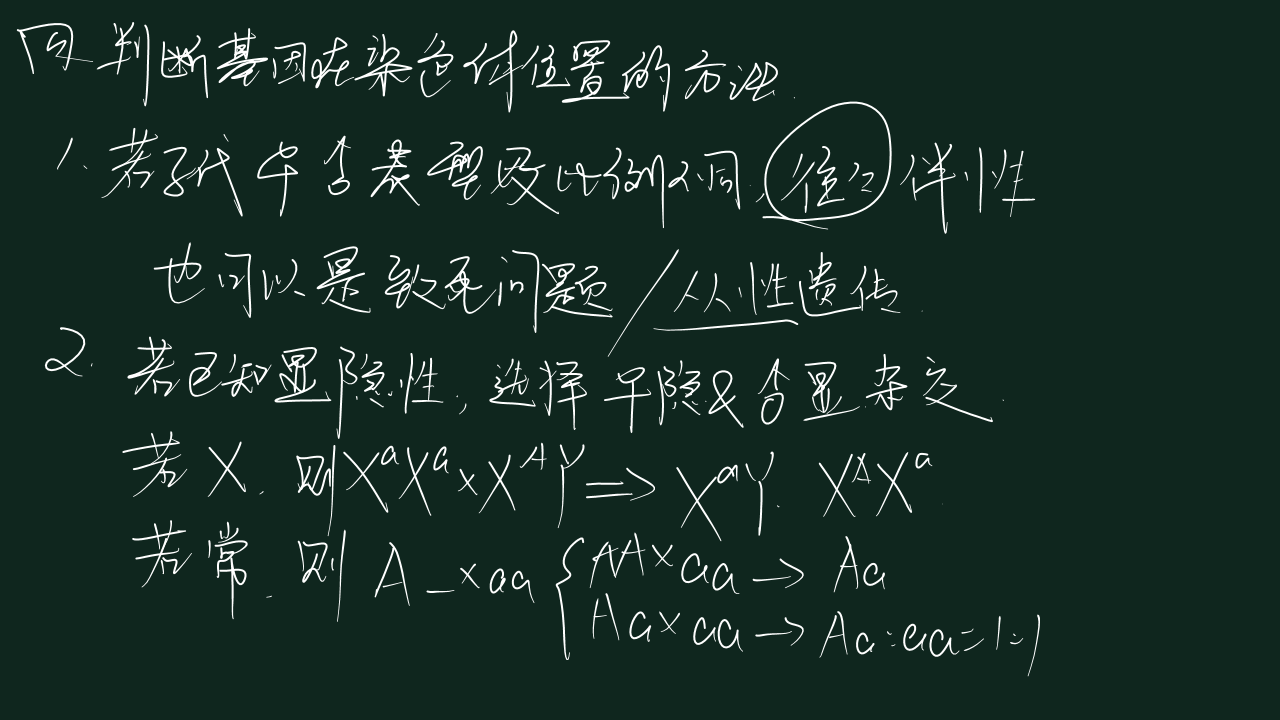 四 判断基因在染色体位置的方法.
1. 若子代♀♂表型及比例不同, 往往伴性
也可以是致死问题/从性遗传.
2. 若已知显隐性, 选择♀隐&♂显杂交.
若X. 则XᵃXᵃ×XᴬY⇒XᵃY. XᴬXᵃ
若常. 则A_×aa { AA×aa→Aa
Aa×aa→Aa:aa=1:1